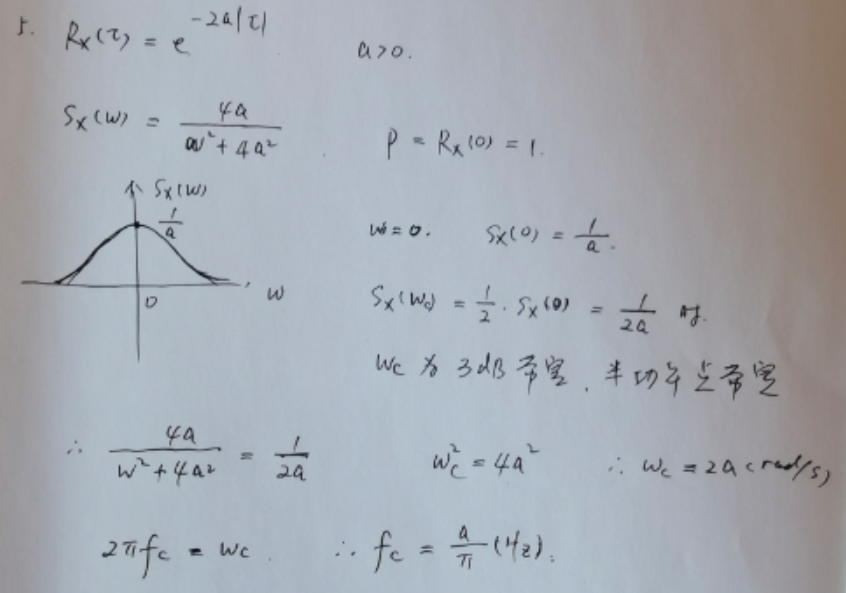 5. Rx(τ) = e^{-2a|τ|} a>0.
Sx(w) = \frac{4a}{w²+4a²} . P = Rx(0) = 1.
Sx(w)
\frac{1}{a}
w=0. Sx(0) = \frac{1}{a}.
0 w
Sx(wc) = \frac{1}{2} · Sx(0) = \frac{1}{2a} 时.
wc 为 3dB 带宽. 半功率点带宽
∴ \frac{4a}{w²+4a²} = \frac{1}{2a} wc² = 4a² ∴ wc = 2a (rad/s)
2πfc = wc. ∴ fc = \frac{a}{π} (Hz).